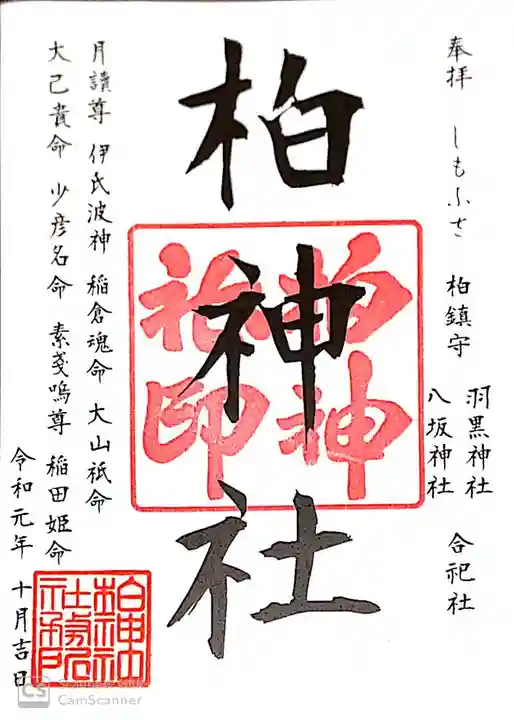 奉拝 しもふさ 柏鎮守
羽黒神社
八坂神社
合祀社
柏神社
柏神
社印
月讀尊 伊氏波神 稲倉魂命 大山祇命
大己貴命 少彦名命 素戔嗚尊 稲田姫命
令和元年 十月吉日
柏神社
社務所
CS
CamScanner